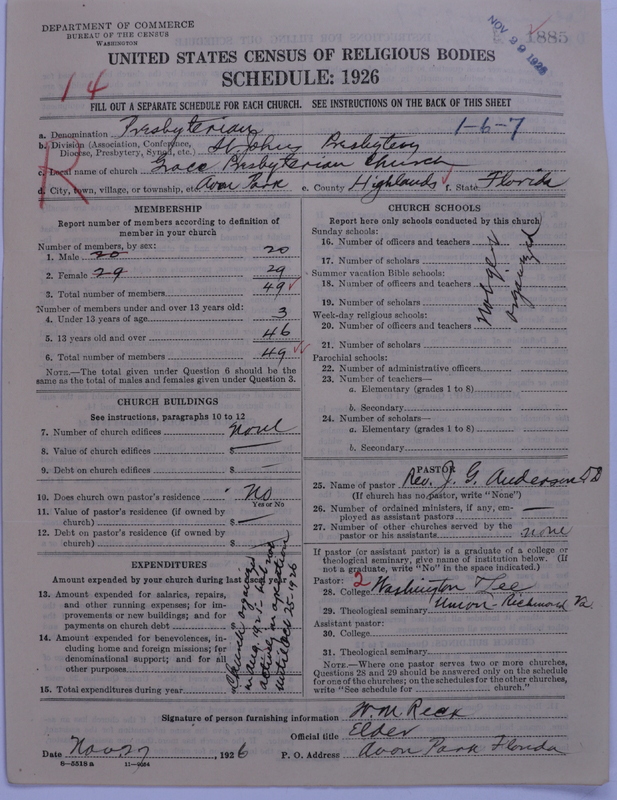 DEPARTMENT OF COMMERCE
BUREAU OF THE CENSUS
WASHINGTON
NOV 29 1926
1885
UNITED STATES CENSUS OF RELIGIOUS BODIES
SCHEDULE: 1926
14
FILL OUT A SEPARATE SCHEDULE FOR EACH CHURCH. SEE INSTRUCTIONS ON THE BACK OF THIS SHEET
1-6-7
a. Denomination Presbyterian
b. Division (Association, Conference, Diocese, Presbytery, Synod, etc.) St Johns Presbytery
c. Local name of church Grace Presbyterian Church
d. City, town, village, or township, etc. Avon Park e. County Highlands f. State Florida
R
MEMBERSHIP
Report number of members according to definition of
member in your church
Number of members, by sex:
1. Male 20 20
2. Female 29 29
3. Total number of members 49
Number of members under and over 13 years old:
4. Under 13 years of age 3
5. 13 years old and over 46
6. Total number of members 49
NOTE.—The total given under Question 6 should be the
same as the total of males and females given under Question 3.
CHURCH BUILDINGS
See instructions, paragraphs 10 to 12
7. Number of church edifices none
8. Value of church edifices $ —
9. Debt on church edifices $ —
10. Does church own pastor's residence No
Yes or No
11. Value of pastor's residence (if owned by
church) $ —
12. Debt on pastor's residence (if owned by
church) $
EXPENDITURES
Amount expended by your church during last
13. Amount expended for salaries, repairs,
and other running expenses; for im-
provements or new buildings; and for
payments on church debt
14. Amount expended for benevolences, in-
cluding home and foreign missions; for
denominational support; and for all
other purposes
15. Total expenditures during year
Church organized
in Aug. 1925 - but not
actively in operation
until Oct 25-1926
CHURCH SCHOOLS
Report here only schools conducted by this church
Sunday schools:
16. Number of officers and teachers
17. Number of scholars
Summer vacation Bible schools:
18. Number of officers and teachers
19. Number of scholars
Week-day religious schools:
20. Number of officers and teachers
21. Number of scholars
Parochial schools:
22. Number of administrative officers
23. Number of teachers—
a. Elementary (grades 1 to 8)
b. Secondary
24. Number of scholars—
a. Elementary (grades 1 to 8)
b. Secondary
Not yet
organized
PASTOR
25. Name of pastor Rev. J. G. Anderson D D
(If church has no pastor, write "None")
26. Number of ordained ministers, if any, em-
ployed as assistant pastors —
27. Number of other churches served by the
pastor or his assistants none
If pastor (or assistant pastor) is a graduate of a college or
theological seminary, give name of institution below. (If
not a graduate, write "No" in the space indicated.)
Pastor: 2
28. College Washington & Lee
29. Theological seminary Union - Richmond Va.
Assistant pastor:
30. College
31. Theological seminary
NOTE.—Where one pastor serves two or more churches,
Questions 28 and 29 should be answered only on the schedule
for one of the churches; on the schedules for the other churches,
write "See schedule for church."
Signature of person furnishing information W. M. Reck
Official title Elder
Date Nov 27, 1926 P. O. Address Avon Park Florida
8-5518 a 11-9564